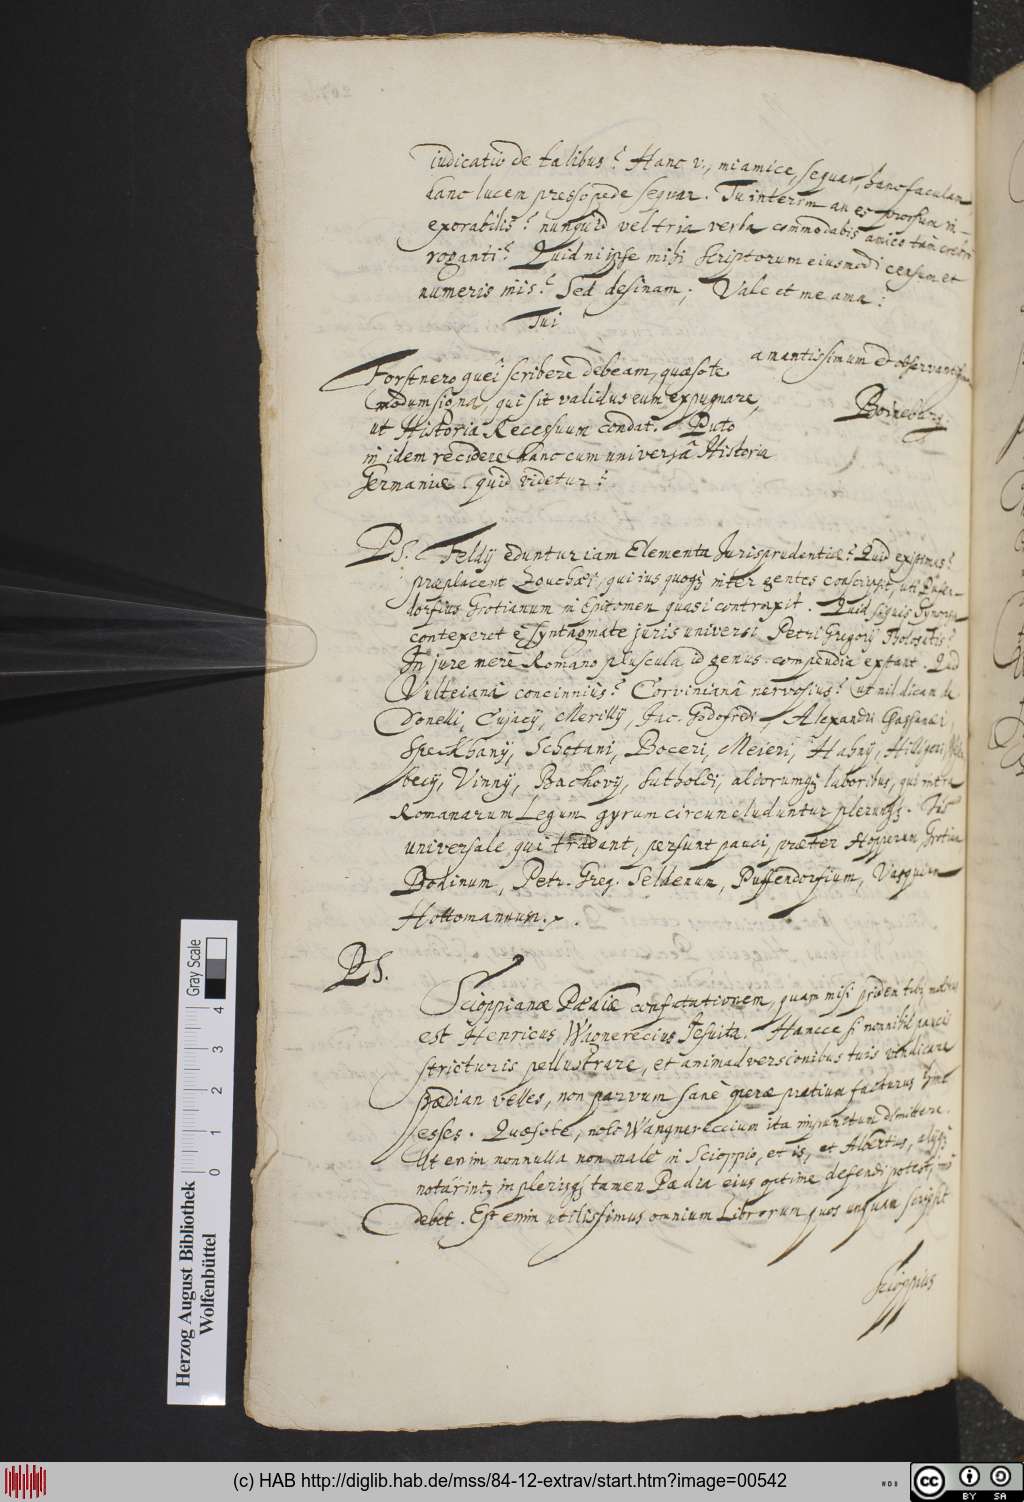 iudicatio de talibus? Hanc v., mi amice, sequar, hanc faculam,
hanc lucem presso pede sequar. Tu interim an es prorsum in-
exorabilis? nunquid vel tria verba commodabis amico tam crebro
roganti? Quidni ipse mihi scriptorum eiusmodi censum et
numeris inis? Sed desinam; Vale et me ama:
Tui
amantissimum et observantissimum
Boineburg
Forstnero quei scribere debeam, quæso te
modum signa, qui sit validus eum expugnare,
ut Historiã Recessuum condat. Puto
in idem recidere hanc cum universâ Historia
Germaniæ. quid videtur?
PS. Feldij eduntur iam Elementa Jurisprudentiæ? Quid existimas?
præplacent Zouchæi, qui ius quoqz inter gentes conscripsit, uti Pufen-
dorfius Grotianum in Epitomen quasi contraxit. Quid siquis Synopsin
contexeret è Syntagmate juris universi Petri Gregorij Tholosatis?
In jure merè Romano pluscula id genus compendia extant. Quid
Vulteianâ concinnius? Corvinianâ nervosius? ut nil dicam de
Donelli, Cujacij, Merillij, Jac. Godofredi, Alexandri Gassanæi,
Speckhanij, Schotani, Boceri, Meieri, Hahnij, Hilligeri,
becij, Vinnij, Bachovij, Sutholdi, aliorumqz laboribus, qui intra
Romanarum Legum gyrum circuncluduntur plerunqz. Jus
universale qui tradant, persunt pauci, præter Hopperum, Grotium
Bodinum, Petr. Greg. Seldenum, Puffendorfium, Vasquium
Hottomannum.
PS.
Scioppianæ Pædiæ confutationem, quam misi pridem tibi, molitus
est Henricus Wagnerecius Jesuita. Hancce si nonnihil paucis
stricturis pellustrare, et animadversionibus tuis vindicare
pædian velles, non parvum sanè operæ pretium facturus
esses. Quæso te, nolo Wangnereccium ita impunitum dimittere.
Ut enim nonnulla non malè in Scioppio, et is, et Albertus, alijqz
notârint, in plerisqz tamen Pædia eius optime defendi potest, imò
debet. Est enim utilissimus omnium Librorum quos unquam scripsit
Scioppius
Herzog August Bibliothek
Wolfenbüttel
Gray Scale
0 1 2 3 4
(c) HAB http://diglib.hab.de/mss/84-12-extrav/start.htm?image=00542
cc BY SA